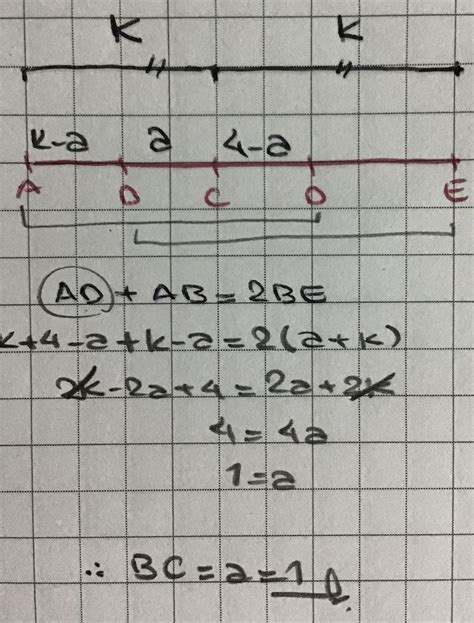 K K
K-a a 4-a
A B C D E
AD + AB = 2BE
K+4-a+K-a=2(a+K)
2K-2a+4=2a+2K
4=4a
1=a
∴ BC=a=1